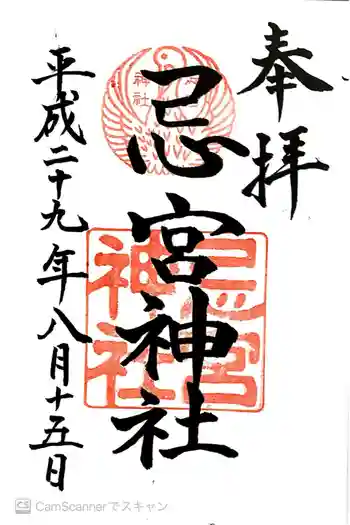 奉拝
忌宮神社
平成二十九年八月十五日
忌宮
神社
神社
CS CamScannerでスキャン